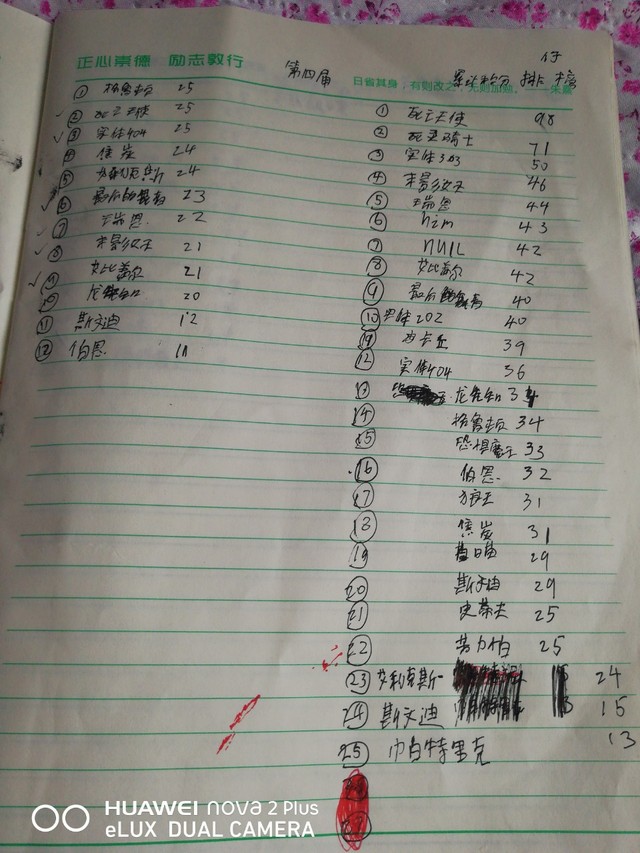 正心崇德 励志敦行
第四届
日省其身,有则改之,无则加勉。
累计积分 排 榜
① 格鲁顿 25
② 死亡天使 25
③ 实体404 25
④ 焦炭 24
⑤ 艾利克斯 24
⑥ 23
⑦ 瑞恩 22
⑧ 末影女王 21
⑨ 艾比盖尔 21
⑩ 20
⑪ 斯文迪 12
⑫ 伯恩 11
① 死亡天使 98
② 死灵骑士 71
③ 实体303 50
④ 末影女王 46
⑤ 瑞恩 44
⑥ him 43
⑦ NUIL 42
⑧ 艾比盖尔 42
⑨ 40
⑩ 实体202 40
⑪ 39
⑫ 实体404 36
⑬ 34
⑭ 格鲁顿 34
⑮ 恐惧魔王 33
⑯ 伯恩 32
⑰ 31
⑱ 焦炭 31
⑲ 29
⑳ 斯文迪 29
21 史蒂夫 25
22 劳力伯 25
23 艾利克斯 24
24 斯文迪 15
25 巾白特里克 13
HUAWEI nova 2 Plus
eLUX DUAL CAMERA